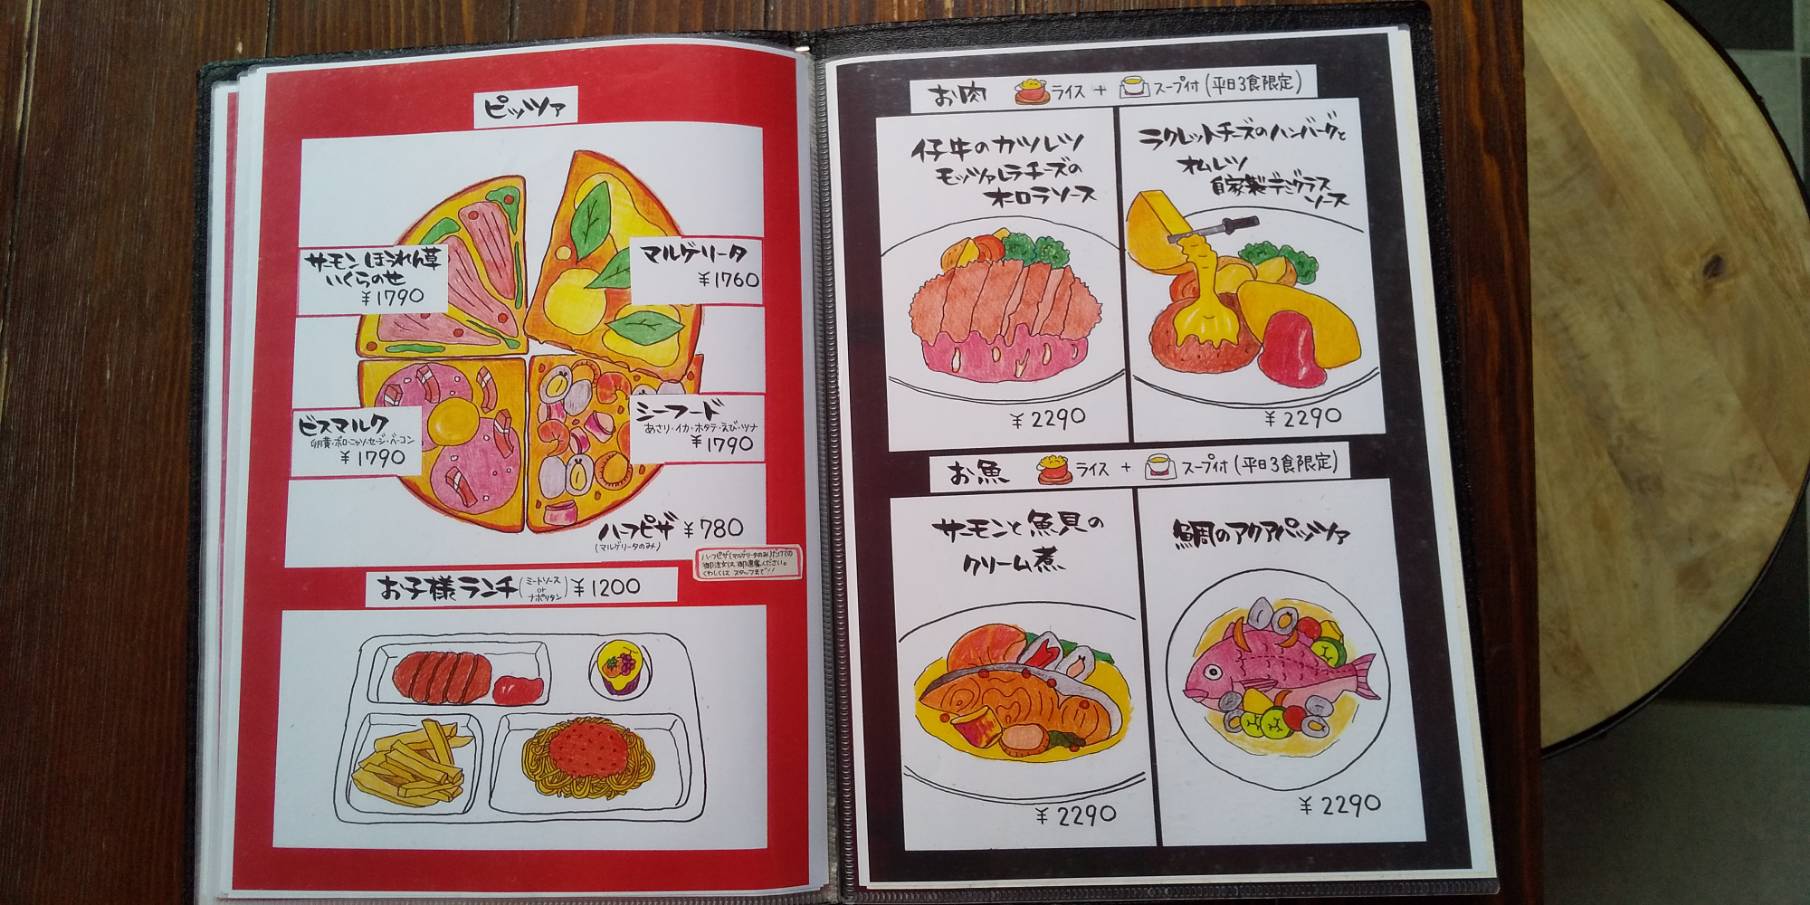 ピッツァ
サーモン ほうれん草
いくらのせ
¥1790
マルゲリータ
¥1760
ビスマルク
卵黄・ボローニャソーセージ・ベーコン
¥1790
シーフード
あさり・イカ・ホタテ・えび・ツナ
¥1790
ハーフピザ ¥780
(マルゲリータのみ)
ハーフピザ(マルゲリータのみ)だけでの
御注文は御遠慮ください。
くわしくは スタッフまで!!
お子様ランチ(ミートソース or ナポリタン) ¥1200
お肉 ライス + スープ付(平日3食限定)
仔牛のカツレツ
モッツァレラチーズの
オーロラソース
¥2290
ラクレットチーズのハンバーグと
オムレツ
自家製デミグラス
ソース
¥2290
お魚 ライス + スープ付(平日3食限定)
サーモンと魚貝の
クリーム煮
¥2290
鯛のアクアパッツァ
¥2290